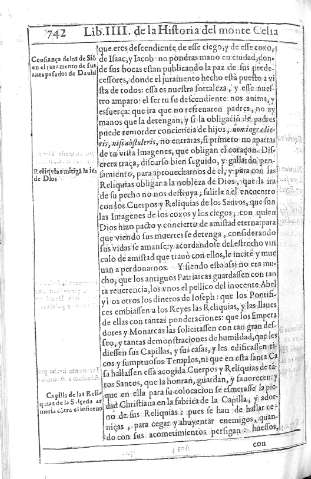 742 Lib. IIII. de la Historia del monte Celia
que eres descendiente de esse ciego, y de esse coxo, i
de Isaac, y Iacob no pondras mano en ciudad, don-
de sus bocas estan publicando la paz de sus prede-
cessores, donde el juramento hecho està puesto a vi-
sta de todos: essa es nuestra fortaleza, y esse nues-
tro amparo: el fer tu su descendiente nos anima, y
esfuerça: que ira que no refrenaron padres, no ay
manos que la detengan, y si la obligaciō de padres
puede remorder conciencia de hijos,
no entraras, si primero no apartas
de tu vista Imagenes, que obligan el coraçon. Dis-
creta traça, discurso bien seguido, y gallardo pen-
samiento, para aprovecharnos de el, y para con las
Reliquias obligar a la nobleza de Dios, que la ira
de su pecho no nos destruya; salirle a el encuentro
con los Cuerpos y Reliquias de los Santos, que son
las Imagenes de los coxos y los ciegos, con quien
Dios hizo pacto y concierto de amistad eterna: para
que viendo sus muertes se detenga, considerando
sus vidas se amanse, y acordandose del estrecho vin-
culo de amistad que travò con ellos, le incite y mue
van a perdonarnos. Y siendo esto assi no era mu-
cho, que los antiguos Patriarcas guardassen con tan
ta reverencia, los vnos el pellico del inocente Abel
y los otros los dineros de Ioseph: que los Pontifi-
ces embiassen a los Reyes las Reliquias, y las llaves
de ellas con tantas ponderaciones: que los Empera
dores y Monarcas las solicitassen con tan gran des-
seo, y tantas demonstraciones de humildad, que les
diessen sus Capillas, y sus casas, y les edificassen ri-
cos y sumptuosos Templos, ni que en esta santa Ca
sa hallassen essa acogida Cuerpos y Reliquias de tā
tos Santos, que la honran, guardan, y favorecen: y
que en ella para su colocacion se esmerasse la pie-
dad Christiana en la fabrica de la Capilla, y ador-
no de sus Reliquias: pues se han de hallar ce-
niças, para cegar y abuyentar enemigos, quan-
do con sus acometimientos persigan: huessos,
con
Reliquias mitigā la ira
de Dios
Capilla de las Reli-
quias